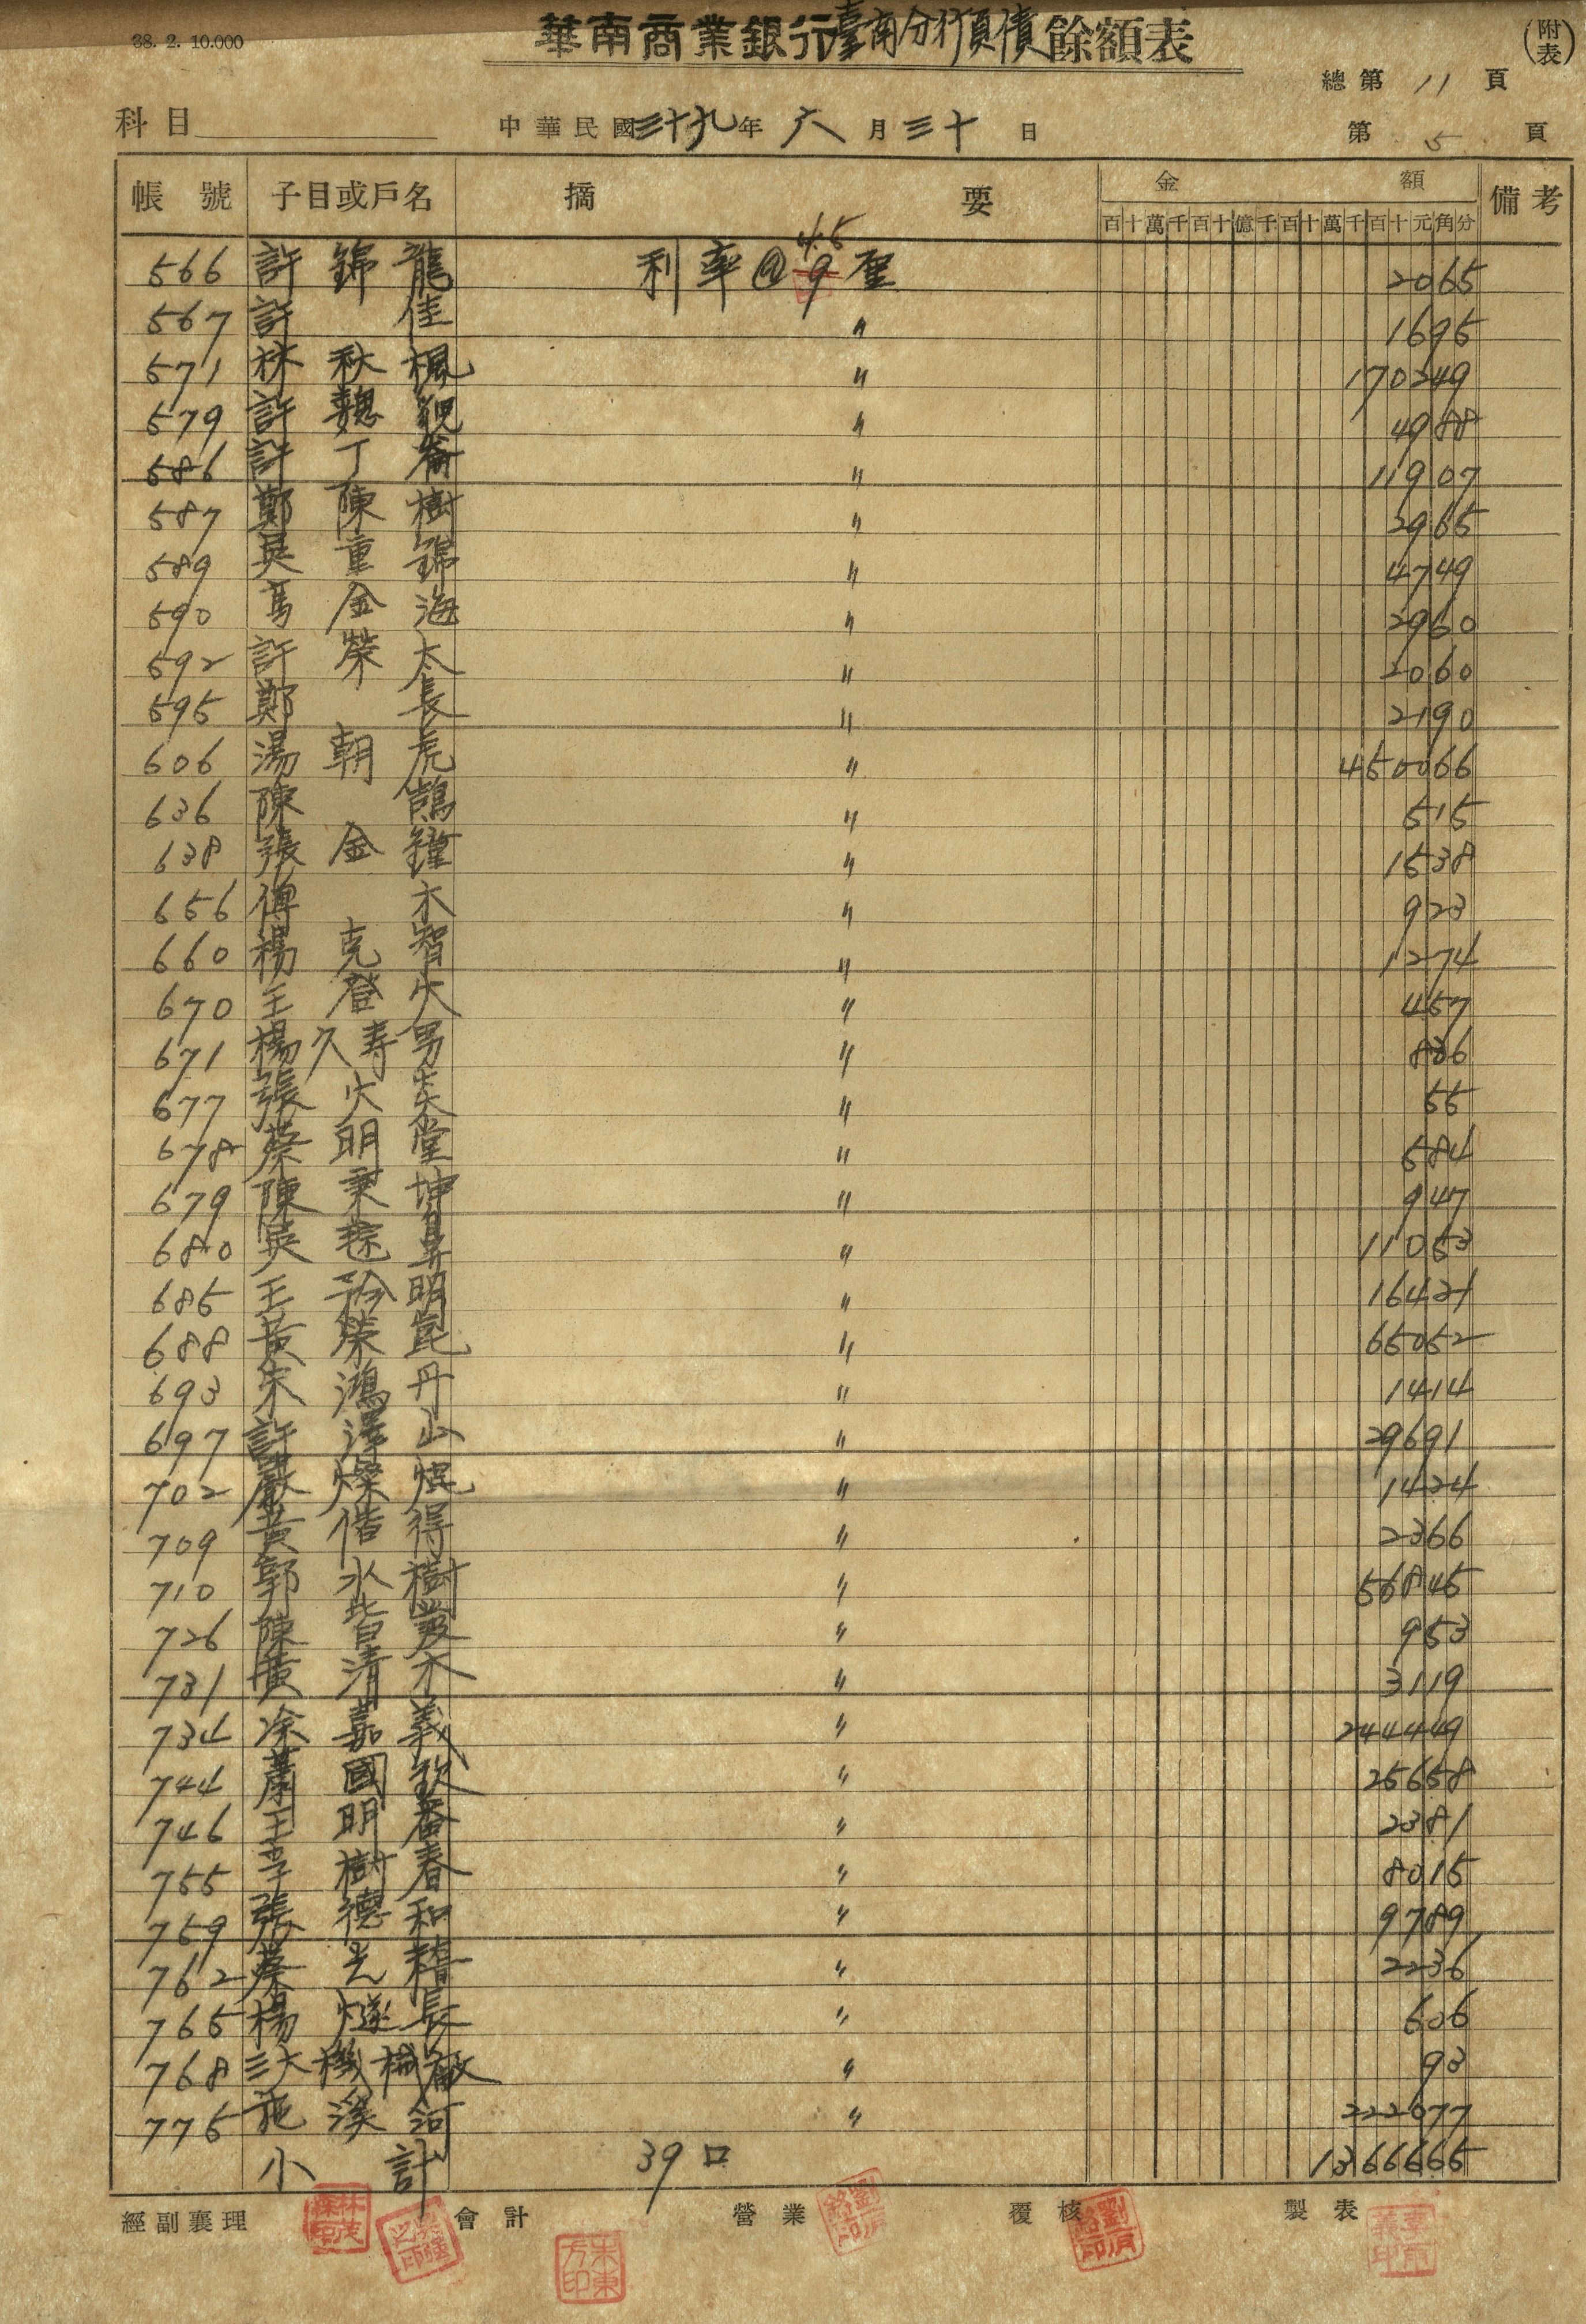 38. 2. 10.000
華南商業銀行臺南分行負債餘額表
(附表)
總第 11 頁
科目 中華民國三十九年六月三十日 第 5 頁
帳號 子目或戶名 摘要 金額 備考
百十萬千百十億千百十萬千百十元角分
4.5
566 許錦龍 利率@9厘 2065
567 許佳 〃 1695
571 林秋楓 〃 170249
579 許魏 〃 4988
586 許丁 〃 11907
587 鄭陳樹 〃 2965
589 吳重錦 〃 4749
590 馬金海 〃 2960
592 許榮太 〃 2060
595 鄭長 〃 2190
606 湯朝虎 〃 450066
636 陳鵠 〃 515
638 張金鐘 〃 1538
656 傅木 〃 923
660 楊克智 〃 1274
670 王登火 〃 457
671 楊久寿男 〃 836
677 張火炎 〃 55
678 蔡明堂 〃 584
679 陳秉坤 〃 947
680 吳 〃 11053
685 王明 〃 16421
688 黃榮崑 〃 65052
693 朱鴻丹 〃 1414
697 許澤山 〃 29691
702 嚴燦焜 〃 1424
709 黃偕得 〃 2366
710 郭水樹 〃 56845
726 陳皆 〃 953
731 黃清木 〃 3119
734 涂嘉義 〃 244449
744 蕭國欽 〃 25658
746 王明番 〃 2381
755 李樹春 〃 8015
759 張德和 〃 9789
762 蔡光 〃 2236
765 楊燧長 〃 606
768 三大機械廠 〃 93
775 施溪河 〃 222077
小計 39口 1366665
經副襄理 會計 營業 覆核 製表